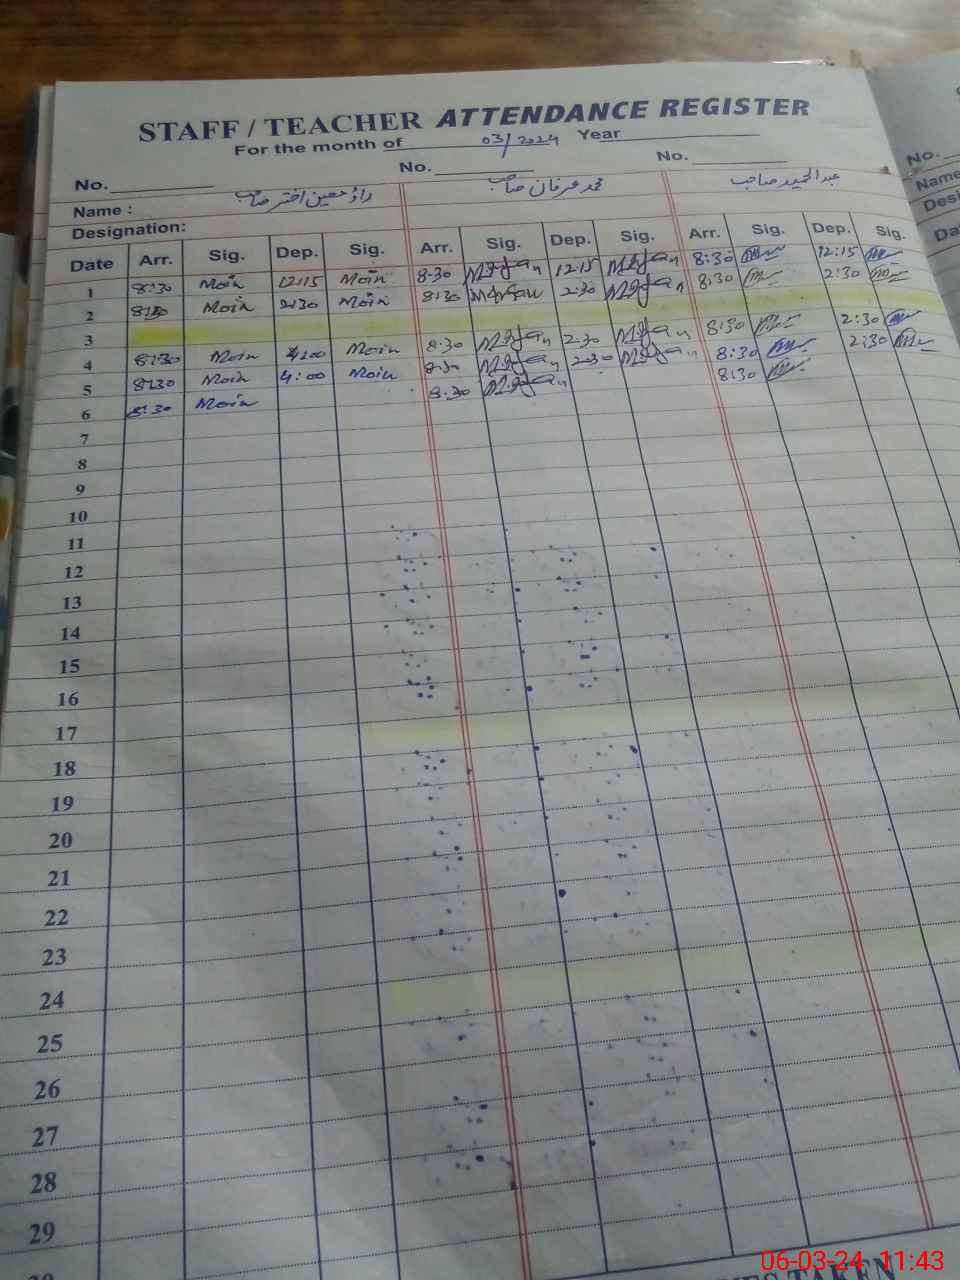 STAFF / TEACHER ATTENDANCE REGISTER
For the month of 03/2024 Year
No. No. No.
Name : راؤ معین اختر صاحب محمد عرفان صاحب عبدالحمید صاحب
Designation:
Date Arr. Sig. Dep. Sig. Arr. Sig. Dep. Sig. Arr. Sig. Dep. Sig.
1 8:30 Moin 12:15 Moin 8:30 M.Irfan 12:15 M.Irfan 8:30 12:15
2 8:30 Moin 2:30 Moin 8:30 M.Irfan 2:30 M.Irfan 8:30 2:30
3
4 8:30 Moin 4:00 Moin 8:30 M.Irfan 2:30 M.Irfan 8:30 2:30
5 8:30 Moin 4:00 Moin 8:30 M.Irfan 2:30 M.Irfan 8:30 2:30
6 8:30 Moin 8:30 M.Irfan 8:30
7
8
9
10
11
12
13
14
15
16
17
18
19
20
21
22
23
24
25
26
27
28
29
No.
Name
06-03-24 11:43